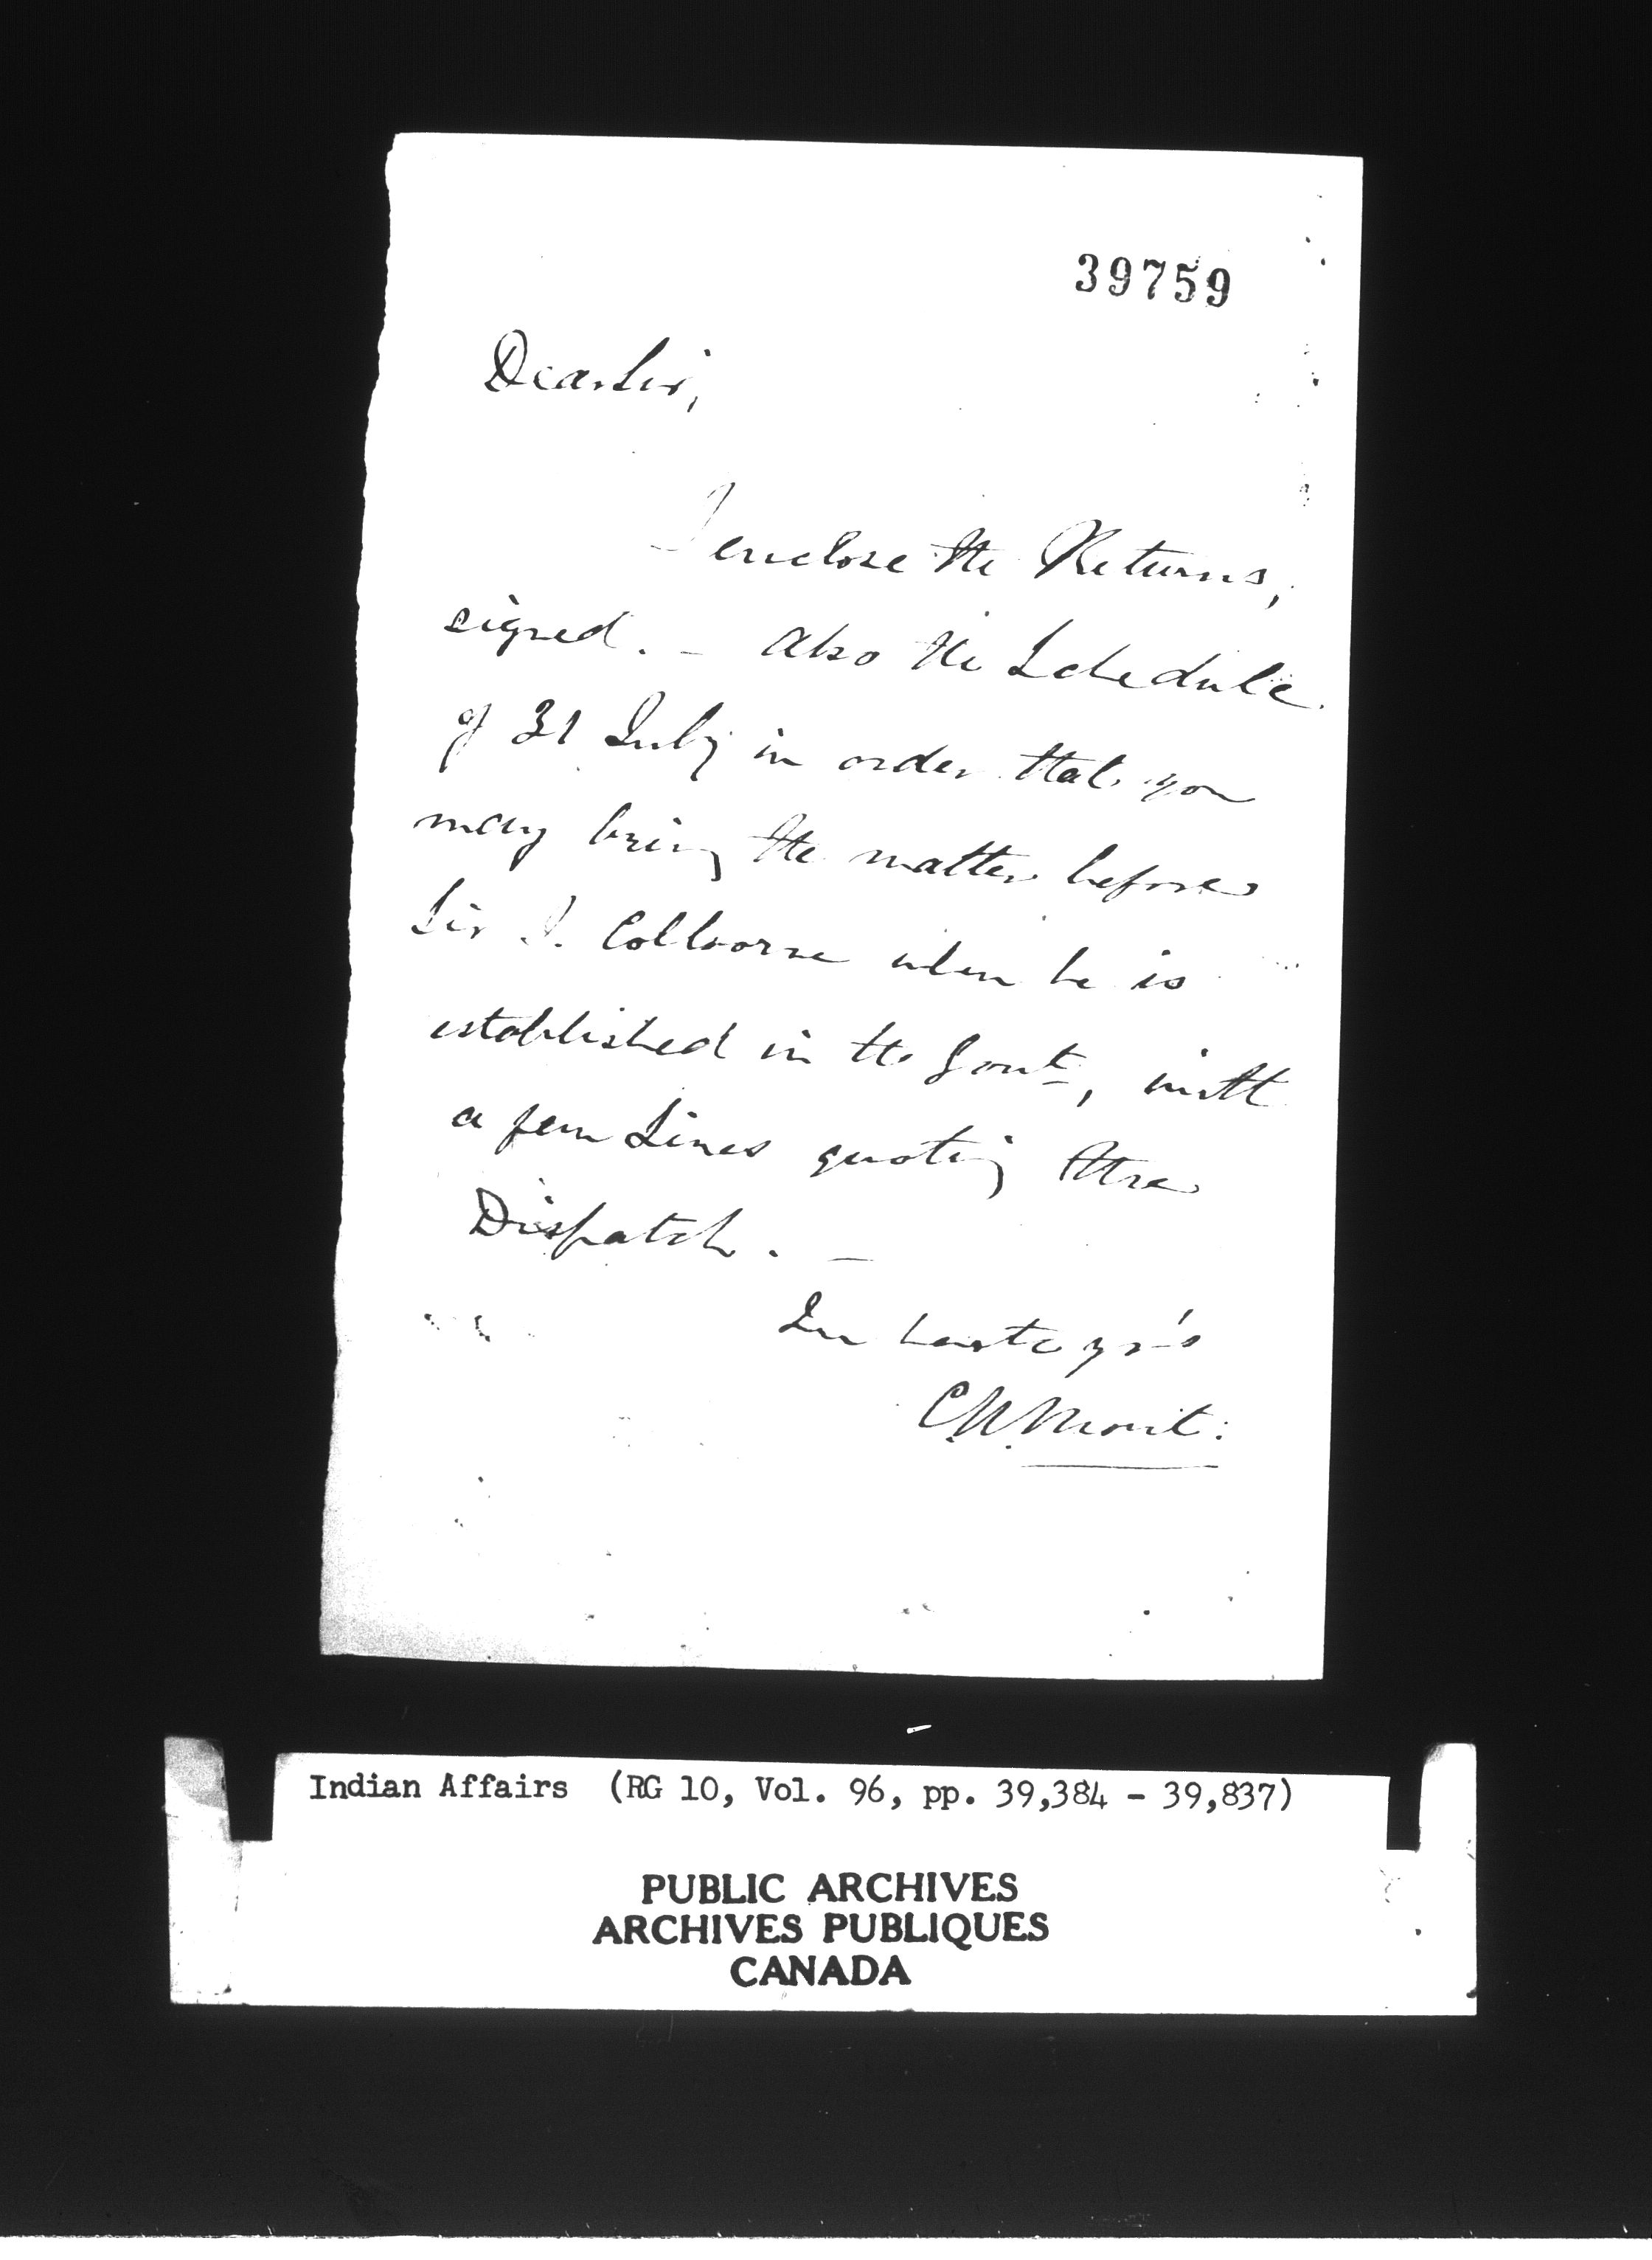 39759
Dear Sir,
I enclose the Returns,
signed. - Also the Schedule
of 31 July in order that you
may bring the matter before
Sir J. Colborne when he is
established in the Govt, with
a few Lines quoting the
Dispatch. -
In haste yrs
C.W. Mont:
Indian Affairs (RG 10, Vol. 96, pp. 39,384 - 39,837)
PUBLIC ARCHIVES
ARCHIVES PUBLIQUES
CANADA